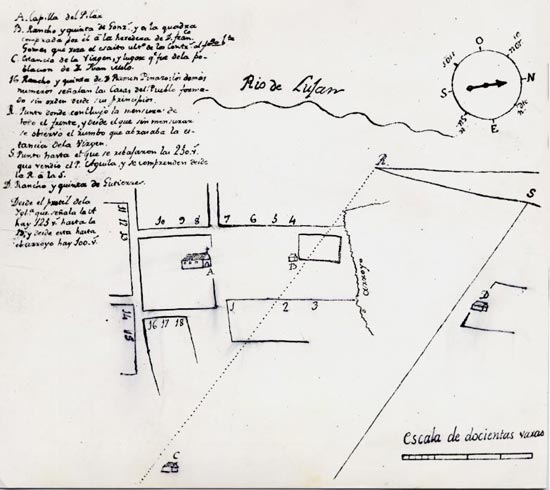 A. Capilla del Pilar
B. Rancho y quinta de Gonz.ˢ y en la quadra
comprada por él á la heredera de D. fran.ᶜᵒ
Gomes que
C. Estancia de la Virgen, y lugar q.ᵉ fue de la po-
blacion de D.
16 Rancho y quinta de D. Ramon los demás
numeros señalan las Casas del Pueblo forma-
do sin orden desde sus principios.
R. Punto donde concluyó la mensura de
todo el frente, y desde el que sin mensurar
se observó el rumbo que abrazaba la es-
tancia de la Virgen.
S. Punto hasta el que se rebajaron las 230.v.ˢ
que vendió el P. Aguila, y se comprenden desde
la R. à la S.
D. Rancho y quinta de Gutierres.
Desde el pretil de la
Igl.ᵃ que señala la A
hay 125 v.ˢ hasta la
B, y desde esta hasta
el arroyo hay 300.v.ˢ
Rio de Lujan
O
N
E
S
R.
S
10 9 8 7 6 5 4
11 12 13
A
B
arroyo
D
1 2 3
14 15
16 17 18
C
Escala de docientas varas